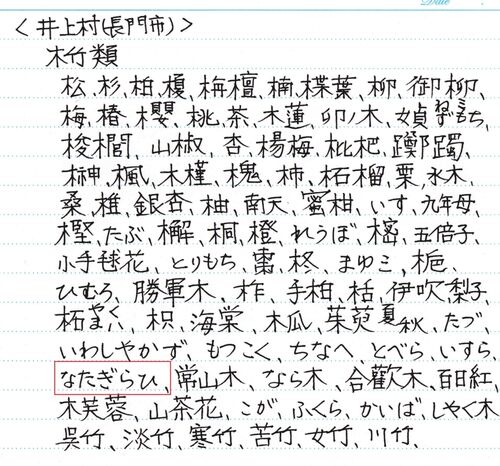 Date
<井上村(長門市)>
木竹類
松、杉、柏、榎、栴檀、楠、楪葉、柳、御柳、
梅、椿、櫻、桃、茶、木蓮、卯ノ木、女貞ねずもち
梭櫚、山椒、杏、楊梅、枇杷、躑躅、
榊、楓、木槿、槐、柿、柘榴、栗、水木、
桑、椎、銀杏、柚、南天、蜜柑、いす、九年母、
樫、たぶ、檞、桐、橙、れうぼ、樒、五倍子、
小手毬花、とりもち、棗、柊、まゆミ、梔、
ひむろ、勝軍木、柞、手柏、栝、伊吹、梨子、
柘、枳、海棠、木瓜、茱萸夏秋、たづ、
いわしやかず、もつこく、ちなへ、とべら、いすら、
なたぎらひ、常山木、なら木、合歡木、百日紅、
木芙蓉、山茶花、こが、ふくら、かいば、しやく木、
呉竹、淡竹、寒竹、苦竹、女竹、川竹、